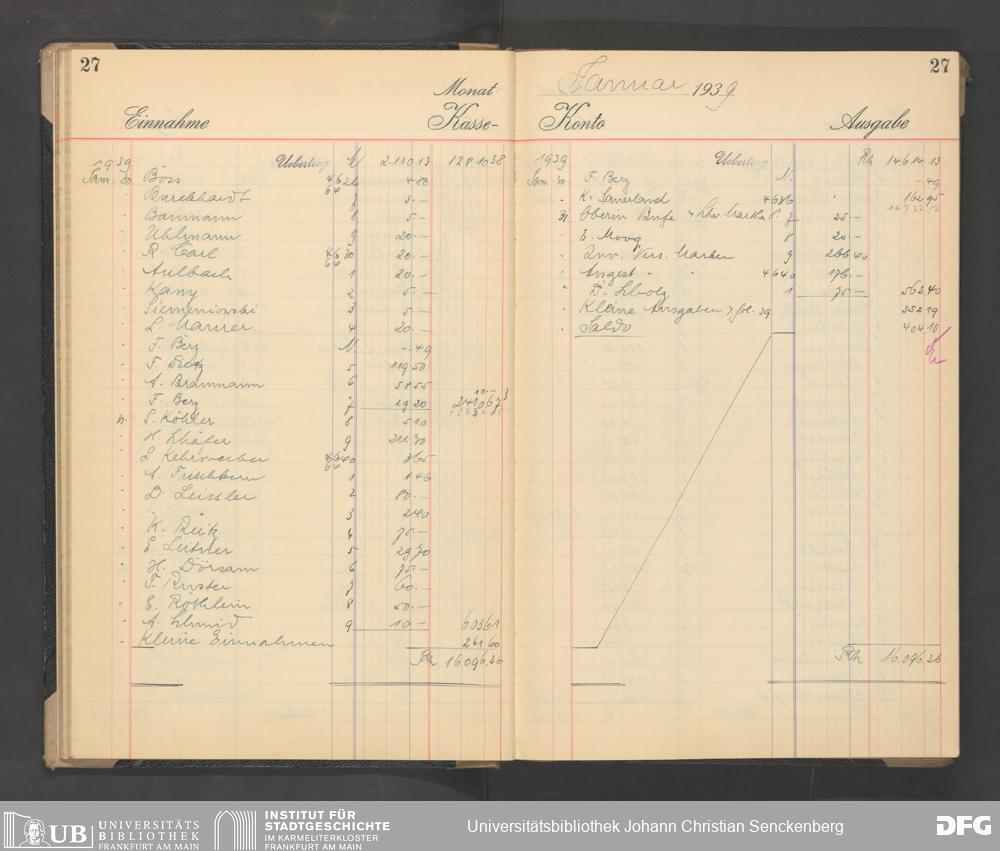 27
Monat
Einnahme Kasse-
1939 Uebertrag 2.110 13 12 810 38
Jan. 30. Böss 4626 4 80
Burckhardt 7 5.—
Baumann 8 5.—
Uhlmann 9 20.—
R. Carl 4630 20.—
Aulbach 1 20.—
Kany 2 5.—
Siemeniowski 3 5.—
L. Maurer 4 20.—
F. Berg —.49
F. Dietz 5 119 50
A. Braumann 6 58 55
F. Berg 7 29 20
31. S. Köhler 8 5 10
H. Schäfer 9 212 30
L. Kehrweiler 4640 3 65
A. Frischkorn 1 1.46
D. Leissler 2 80.—
3 2 40
K. Reitz 4 75.—
E. Leitner 5 29 70
H. Dörsam 6 75.—
F. Ruster 7 60.—
E. Röthlein 8 50.—
A. Schmid 9 10.— 603 61
Kleine Einnahmen 261 60
RM 16 096.26
27
Januar 1939
Konto Ausgabe
1939 Uebertrag RM 14 614.13
Jan. 30. F. Berg —.49
K. Sauerland 4636 162.95
31. Oberin 7 25.—
E. Moog 8 20.—
Inv. Vers. Marken 9 266 40
Angest " " 4640 176.—
D. Scholz 1 75.— 562.40
Kleine Ausgaben 39 352 19
Saldo 404.10
RM 16.096.26
UB UNIVERSITÄTS
BIBLIOTHEK
FRANKFURT AM MAIN
INSTITUT FÜR
STADTGESCHICHTE
IM KARMELITERKLOSTER
FRANKFURT AM MAIN
Universitätsbibliothek Johann Christian Senckenberg
DFG